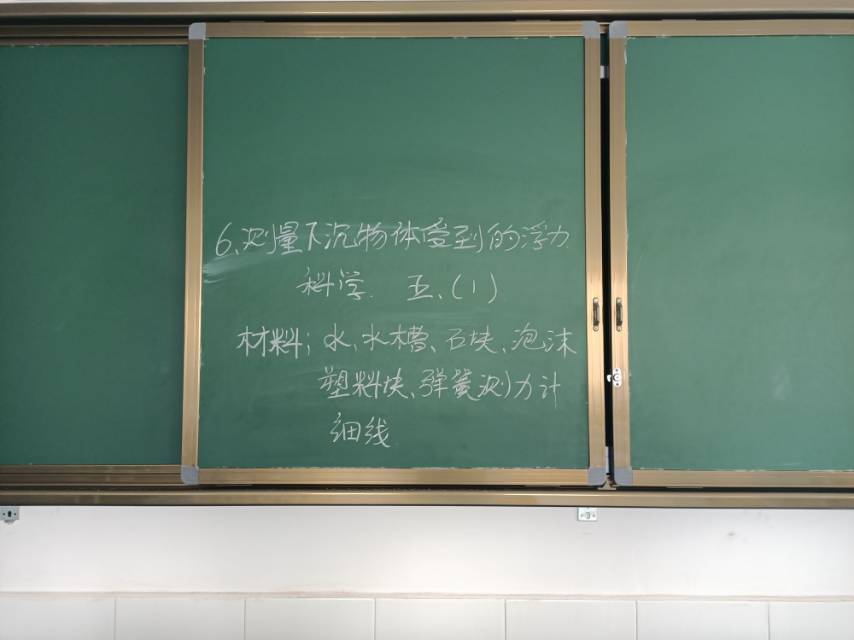 6、测量下沉物体受到的浮力
科学 五、(1)
材料；水、水槽、石块、泡沫
塑料块、弹簧测力计
细线